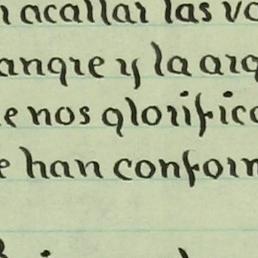 acallar las vo
angre y la arg
e nos glorific
e han confor